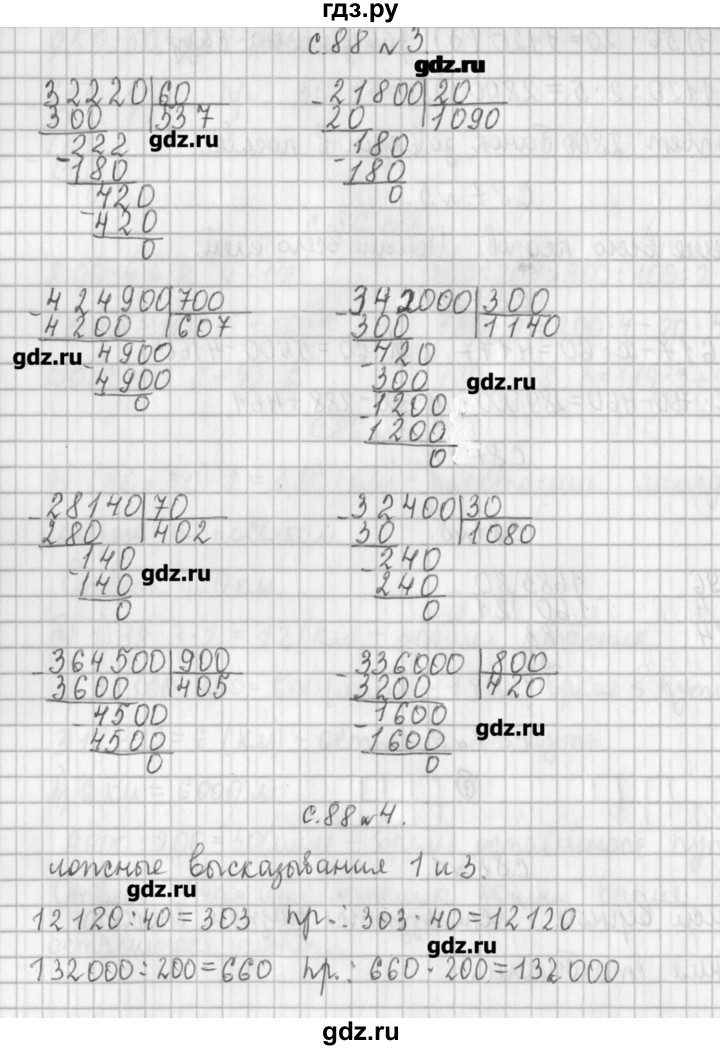 гдз.ру
с.88 №3.
gdz.ru
32220 60
300 537
gdz.ru
222
180
420
420
0
21800 20
20 1090
180
180
0
424900 700
4200 607
gdz.ru
4900
4900
0
342000 300
300 1140
420
gdz.ru
300
1200
1200
0
28140 70
280 402
140
gdz.ru
140
0
32400 30
30 1080
240
240
0
364500 900
3600 405
4500
4500
0
336000 800
3200 420
1600
gdz.ru
1600
0
с.88 №4.
ложные высказывания 1 и 3.
gdz.ru
12120:40=303 пр.: 303·40=12120
gdz.ru
132000:200=660 пр.: 660·200=132000
gdz.ru